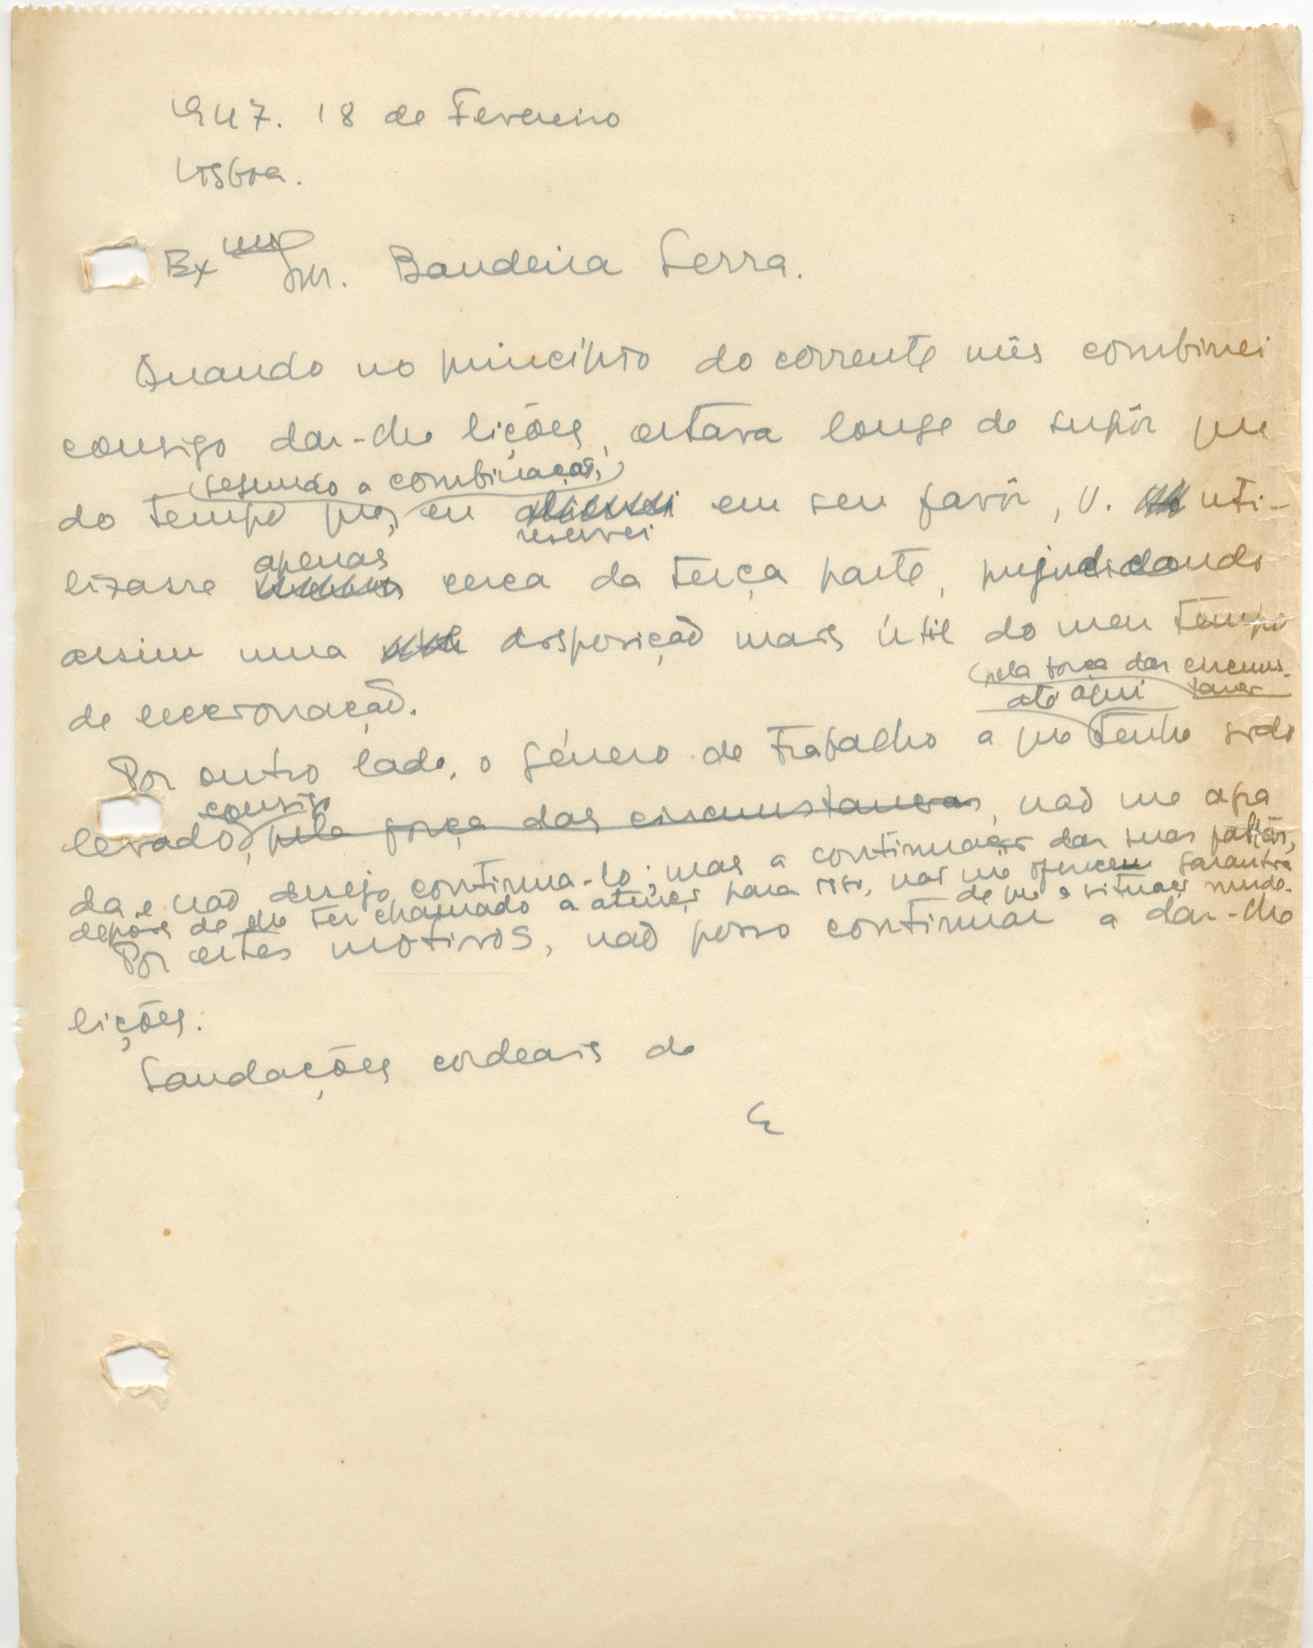 1947. 18 de Fevereiro
Lisboa.
Ex mo Snr. Bandeira Serra.
Quando no princípio do corrente mês combinei
consigo dar-lhe lições, estava longe de supôr que
(segundo a combinação,)
do tempo que, eu em seu favôr, V. uti-
reservei
apenas
lizasse cerca da terça parte, prejudicando
assim uma disposição mais útil do meu tempo
de leccionação.
(pela força das circuns-
até aqui tancias
Por outro lado, o género de trabalho a que tenho sido
consigo
levado, pela força das circunstancias, não me agra
da e não desejo continua-lo; mas a continuação das suas faltas,
depois de lhe ter chamado a atenção para isso, não me oferecem garantia
de que a situação mude.
Por estes motivos, não posso continuar a dar-lhe
lições.
Saudações cordeais de